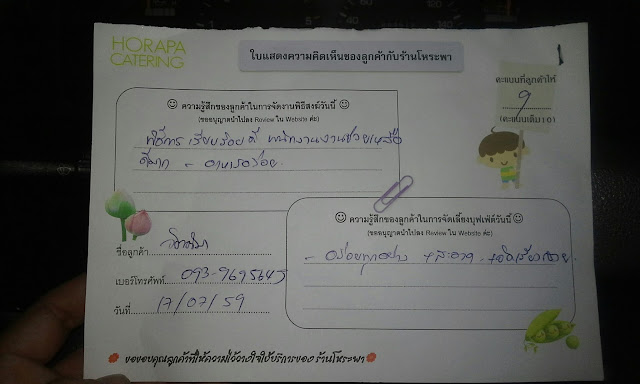 HORAPA
CATERING
ใบแสดงความคิดเห็นของลูกค้ากับร้านโหระพา
1
คะแนนที่ลูกค้าให้
9
(คะแนนเต็ม10)
ความรู้สึกของลูกค้าในการจัดงานพิธีสงฆ์วันนี้
(ขออนุญาตนำไปลง Review ใน Website ค่ะ)
พิธีการ เรียบร้อยดี พนักงานงานช่วยเหลือ
ดีมาก - อาหารอร่อย
ความรู้สึกของลูกค้าในการจัดเลี้ยงบุฟเฟ่ต์วันนี้
(ขออนุญาตนำไปลง Review ใน Website ค่ะ)
- อร่อยทุกอย่าง +สะอาด +จัดเรียง
ชื่อลูกค้า
เบอร์โทรศัพท์ 093-9695645
วันที่ 17/07/59
ขอขอบคุณลูกค้าที่ให้ความไว้วางใจใช้บริการของ ร้านโหระพา